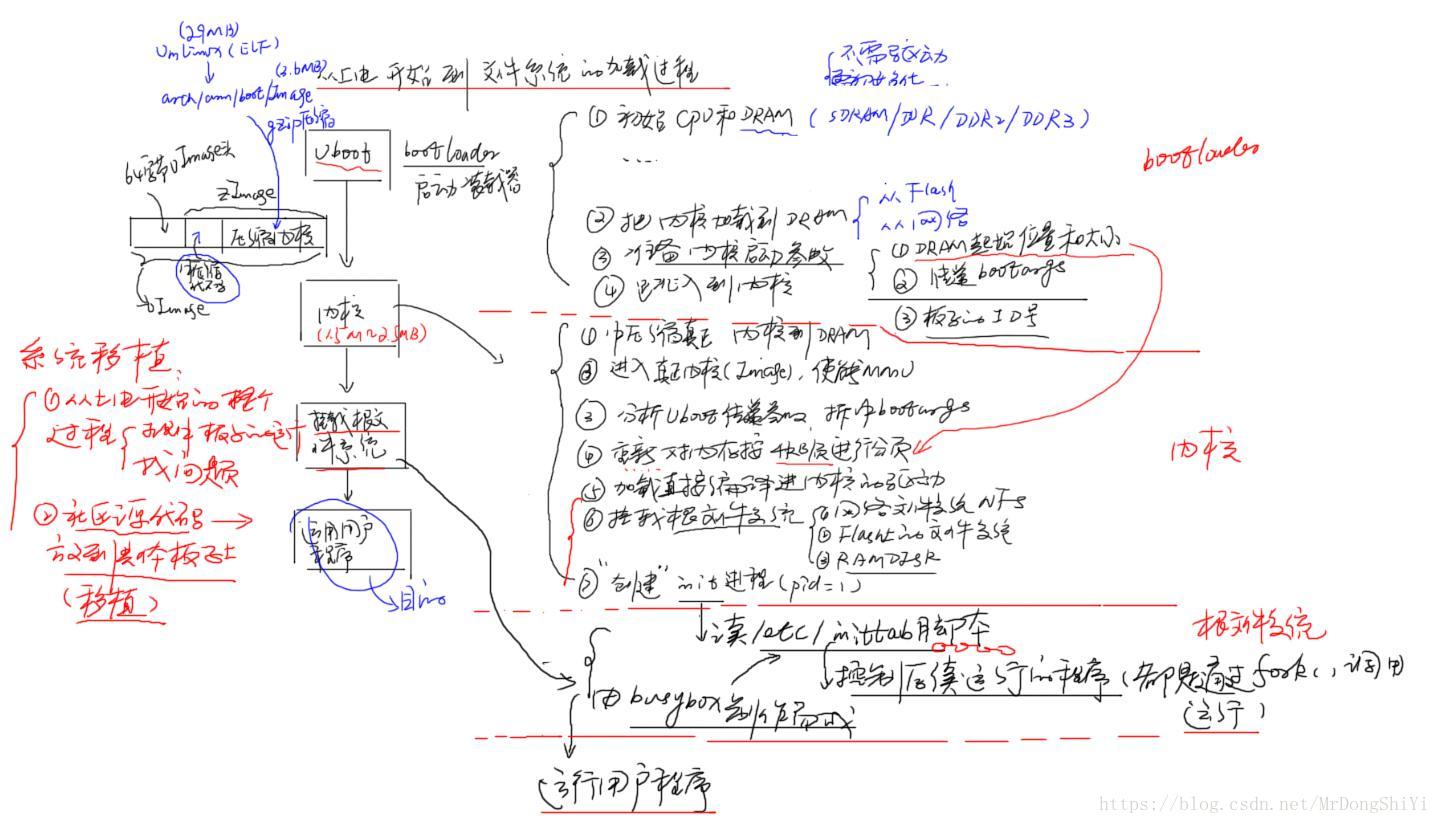 (29MB)
Vmlinux (ELF)
(3.6MB)
arch/arm/boot/Image
gzip压缩
从上电开始到文件系统的加载过程
不需驱动
64字节UImage头
zImage
压缩内核
UImage
Uboot
bootloader
启动装载器
① 初始CPU和DRAM (SDRAM/DDR/DDR2/DDR3)
.....
bootloader
② 把内核加载到DRAM
从Flash
从网络
③ 准备内核启动参数
① DRAM起始位置和大小
② 传递bootargs
③ 板子的ID号
④ 进入到内核
内核
(1.5M~2.5MB)
① 解压缩真正内核到DRAM
② 进入真正内核(Image),使能MMU
③ 分析Uboot传递参数,拆解bootargs
④ 重新对内存按4KB/页进行分页
⑤ 加载直接编译进内核的驱动
⑥ 挂载根文件系统
① 网络文件系统NFS
② Flash上的文件系统
③ RAMDISK
⑦ "创建"init进程(pid=1)
内核
挂载根文件系统
运用用户程序
目的
系统移植:
① 从上电开始的整个
过程
找问题
② 社区源代码
放到具体板子上
(移植)
读/etc/inittab脚本
控制后续运行的程序(都是通过fork()调用
运行)
由busybox制作而成
根文件系统
运行用户程序
https://blog.csdn.net/MrDongShiYi